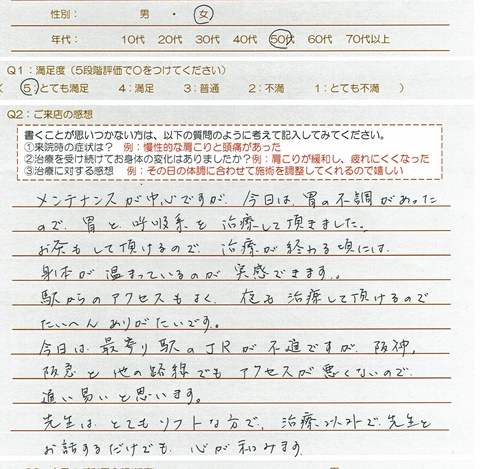 性別： 男 ・ 女
年代： 10代 20代 30代 40代 50代 60代 70代以上
Q1：満足度（5段階評価で〇をつけてください）
（ 5：とても満足 4：満足 3：普通 2：不満 1：とても不満 ）
Q2：ご来店の感想
書くことが思いつかない方は、以下の質問のように考えて記入してみてください。
①来院時の症状は？ 例：慢性的な肩こりと頭痛があった
②治療を受け続けてお身体の変化はありましたか？ 例：肩こりが緩和し、疲れにくくなった
③治療に対する感想 例：その日の体調に合わせて施術を調整してくれるので嬉しい
メンテナンスが中心ですが、今日は、胃の不調があった
ので、胃と、呼吸系を治療して頂きました。
お灸もして頂けるので、治療が終わる頃には、
身体が温まっているのが実感できます。
駅からのアクセスもよく、夜も治療して頂けるので
たいへんありがたいです。
今日は、最寄り駅のJRが不通ですが、阪神、
阪急と他の路線でもアクセスが悪くないので、
通い易いと思います。
先生は、とてもソフトな方で、治療以外で、先生と
お話するだけでも、心が和みます。